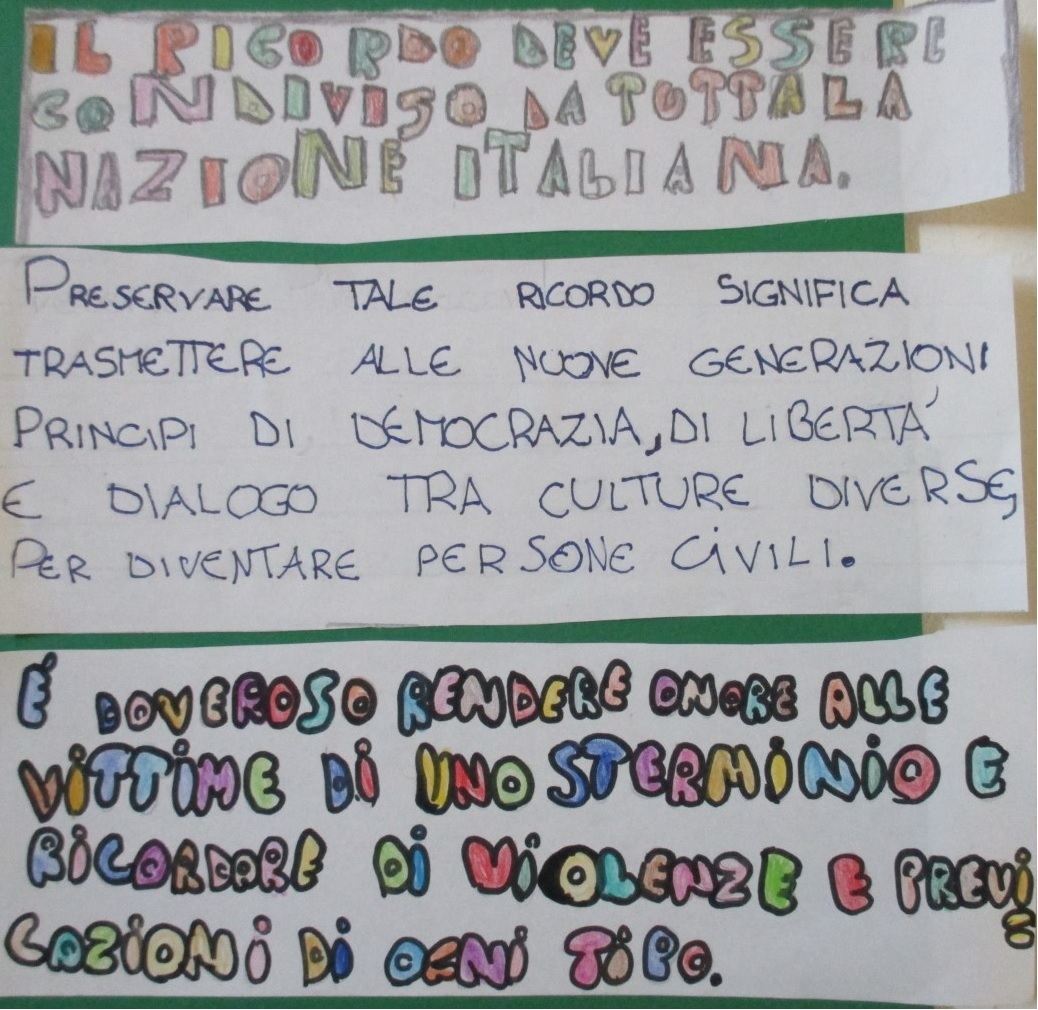 IL RICORDO DEVE ESSERE
CONDIVISO DA TUTTA LA
NAZIONE ITALIANA.
PRESERVARE TALE RICORDO SIGNIFICA
TRASMETTERE ALLE NUOVE GENERAZIONI
PRINCIPI DI DEMOCRAZIA, DI LIBERTA'
E DIALOGO TRA CULTURE DIVERSE,
PER DIVENTARE PERSONE CIVILI.
É DOVEROSO RENDERE ONORE ALLE
VITTIME DI UNO STERMINIO E
RICORDARE DI VIOLENZE E PREVI
CAZIONI DI OGNI TIPO.